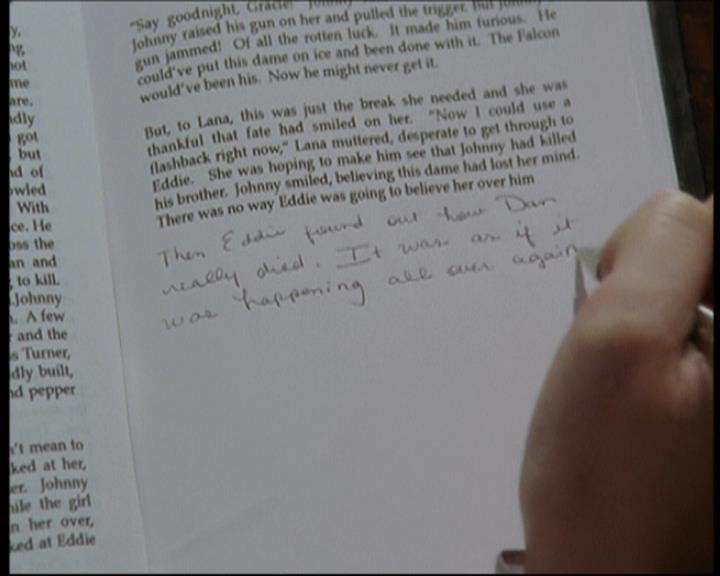 y,
ng
not
me
are.
dly
got
but
d of
owled
With
ce. He
oss the
an and
to kill.
Johnny
. A few
and the
s Turner,
dly built,
nd pepper
't mean to
ked at her,
er. Johnny
ile the girl
n her over,
ked at Eddie
"Say goodnight, Gracie!"
Johnny raised his gun on her and pulled the trigger. But
gun jammed! Of all the rotten luck. It made him furious. He
could've put this dame on ice and been done with it. The Falcon
would've been his. Now he might never get it.
But, to Lana, this was just the break she needed and she was
thankful that fate had smiled on her. "Now I could use a
flashback right now," Lana muttered, desperate to get through to
Eddie. She was hoping to make him see that Johnny had killed
his brother. Johnny smiled, believing this dame had lost her mind.
There was no way Eddie was going to believe her over him
Then Eddie found out how Dan
really died. It was as if it
was happening all over again